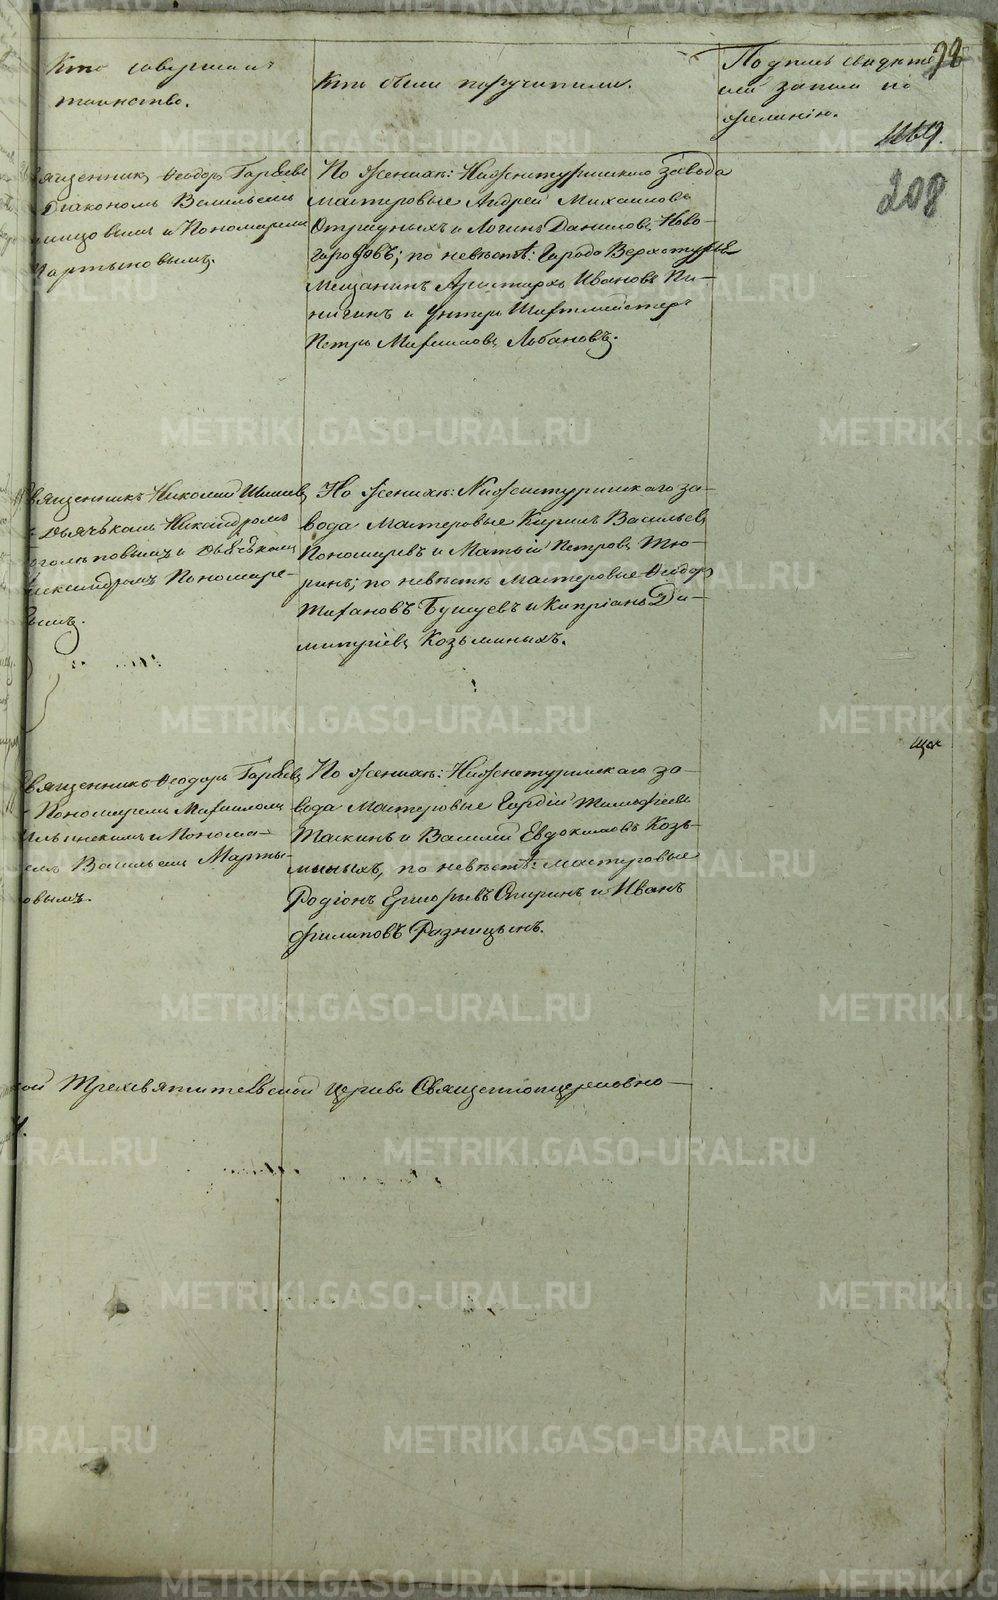 Кто совершалъ
таинство.
Кто были поручители.
Подпись свидѣте
лей записи по
желанію.
208
Священникъ Ѳеодоръ Гаряевъ
Діакономъ Васильемъ
и Пономаремъ
Мартыновымъ.
По женихѣ: Нижнетуринскаго завода
мастеровые Андрей Михаиловъ
Отрадныхъ и Логинъ Даниловъ Ново-
городовъ; по невѣстѣ: Города Верхотурья
Мещанинъ Аристархъ Ивановъ Пи-
нигинъ и Унтеръ Шихтмейстеръ
Петръ Михаиловъ Лобановъ.
Священникъ Николай Шишевъ
съ Дьячькомъ Никандромъ
и Дьячькомъ
Александромъ Пономаре-
вымъ.
По женихѣ: Нижнетуринскаго за-
вода Мастеровые Кирилъ Васильевъ
Пономаревъ и Матѳій Петровъ Тю-
ринъ; по невѣстѣ Мастеровые Ѳеодоръ
Бушуевъ и Кипріанъ Ди-
митріевъ Козьминыхъ.
Священникъ Ѳеодоръ Гаряевъ
съ Пономаремъ Михаиломъ
Ильинскимъ и Понома-
ремъ Васильемъ Марты-
новымъ.
По женихѣ: Нижнетуринскаго за-
вода Мастеровые Гордій Тимофіевъ
Таскинъ и Василій Евдокимовъ Козь-
миныхъ, по невѣстѣ: мастеровые
Родіонъ Григорьевъ Спиринъ и Иванъ
Филиповъ Разницынъ.
Трехсвятительской церкви Священноцерковно-
METRIKI.GASO-URAL.RU